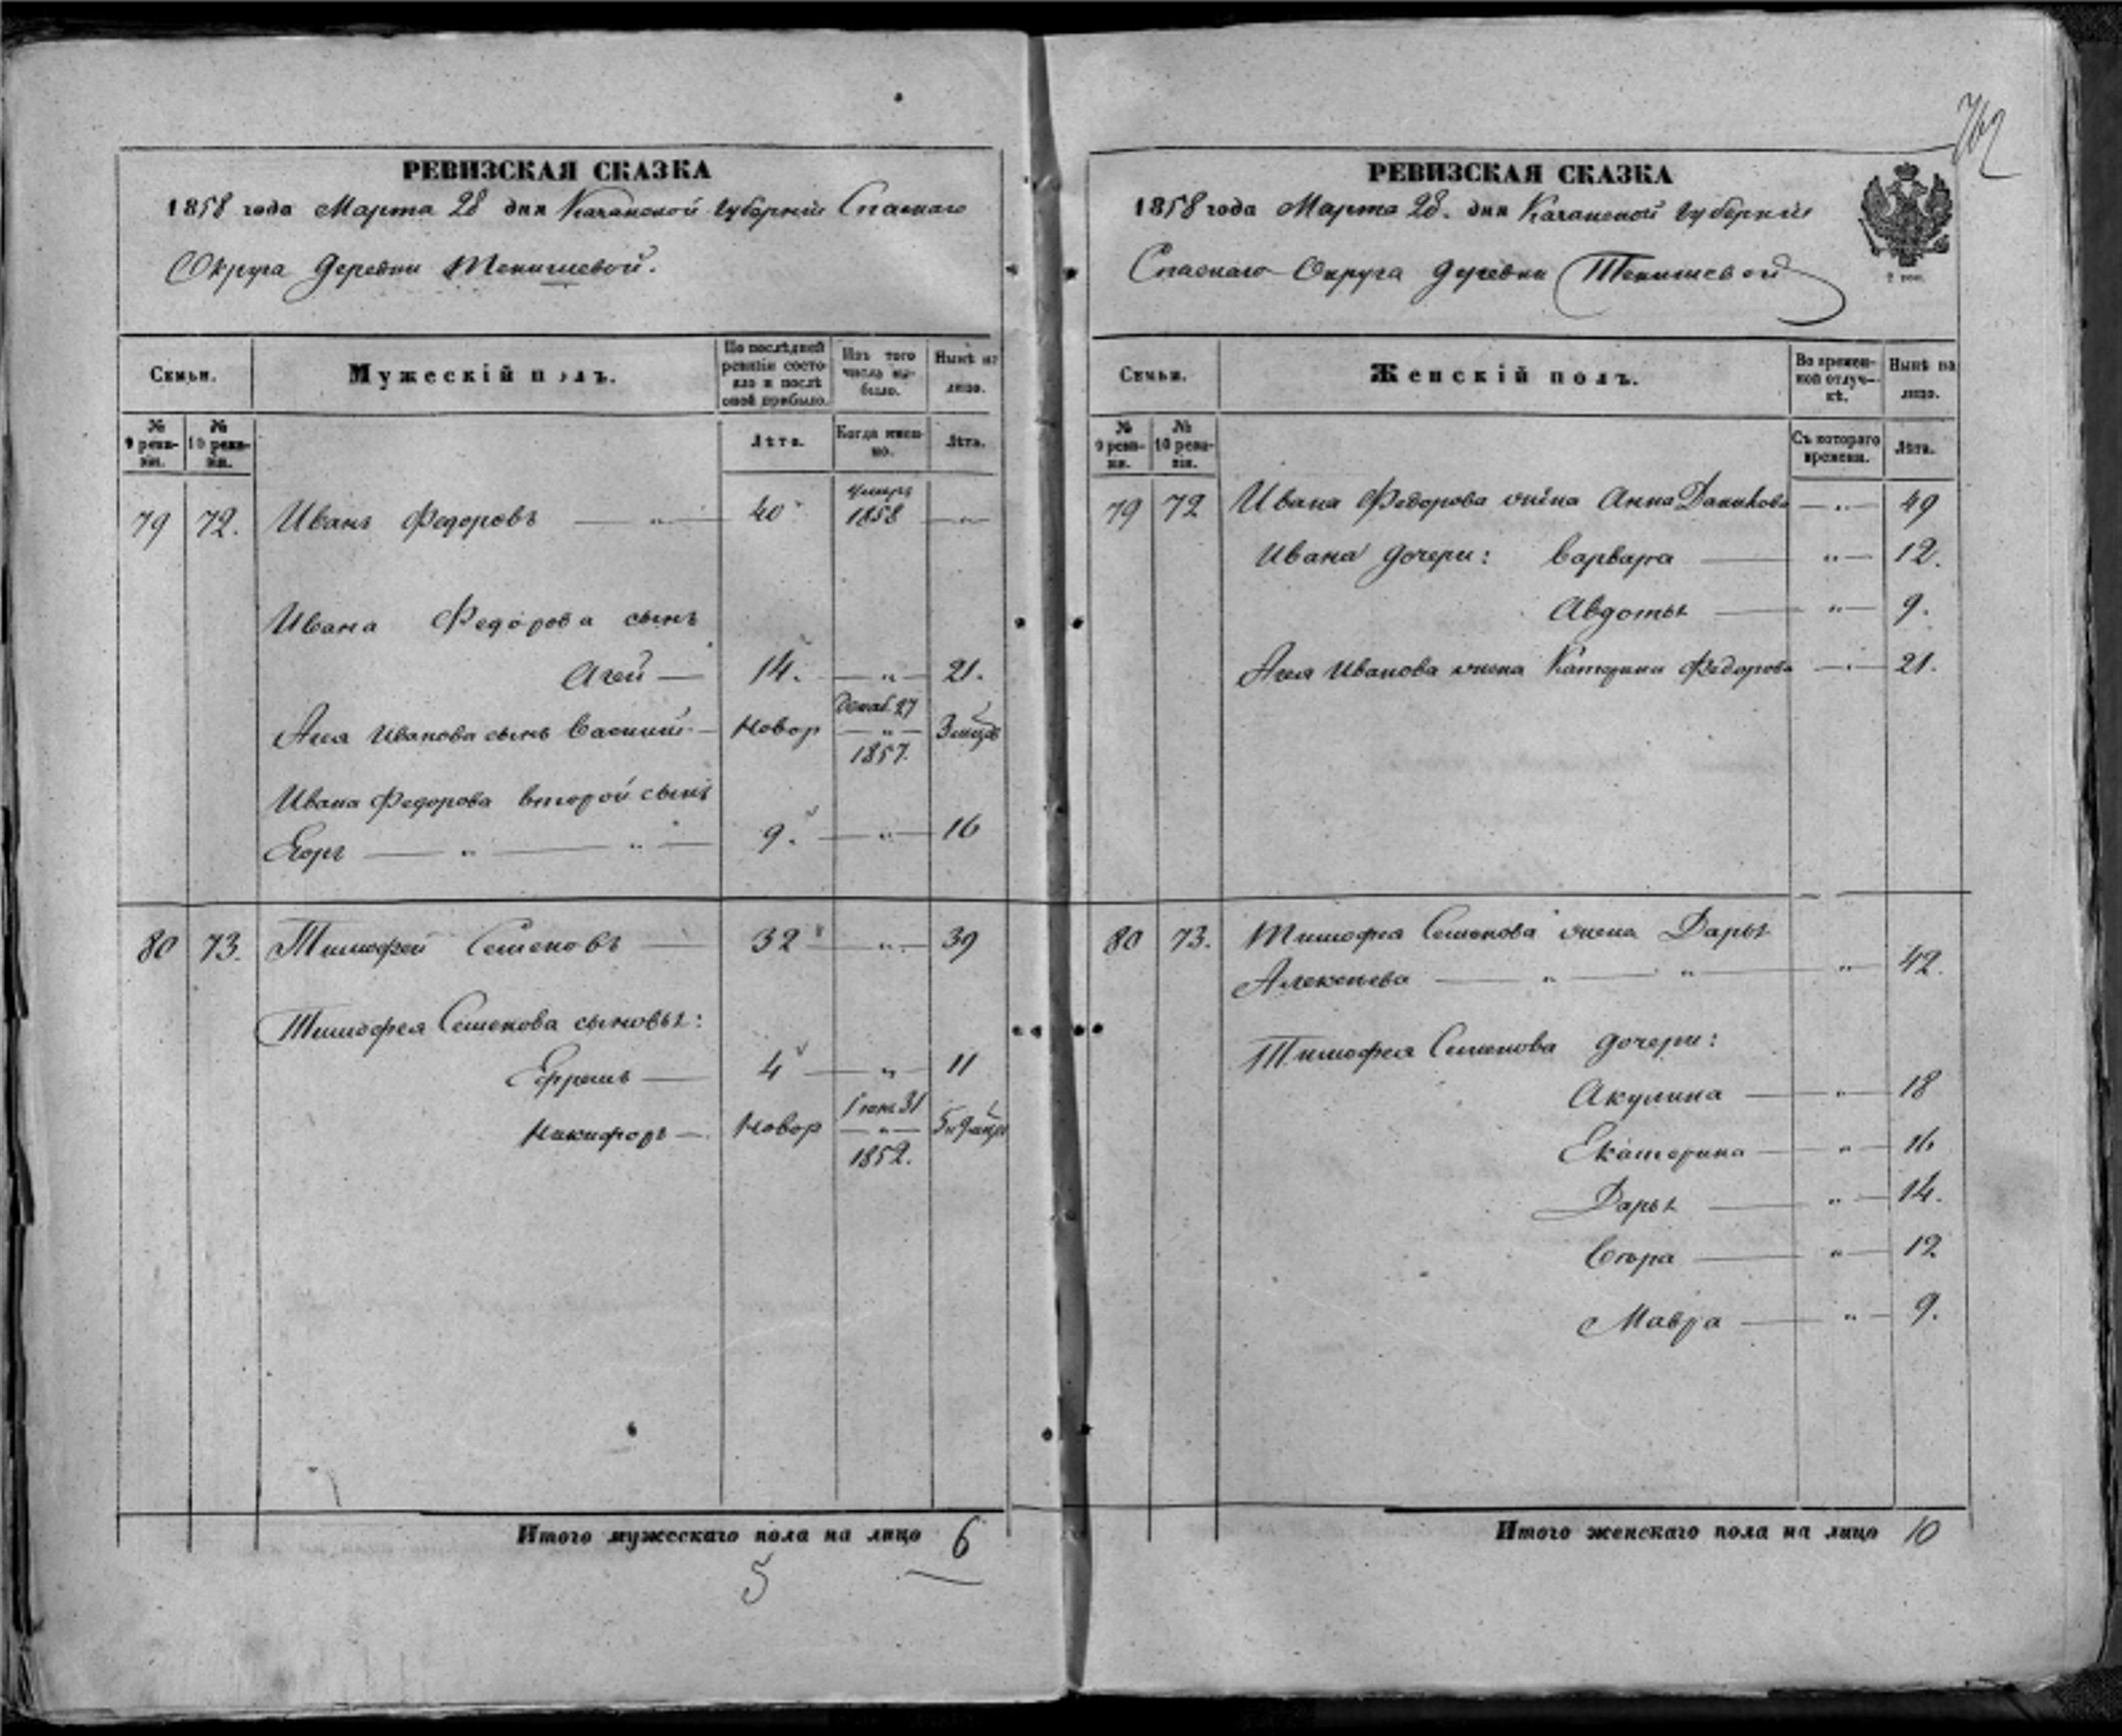 762
РЕВИЗСКАЯ СКАЗКА
1858 года Марта 28 дня Казанской губерніи Спаскаго
Округа деревни Тенишевой.
Семьи.
Мужескій полъ.
По послѣдней ревизіи состояло и послѣ оной прибыло.
Изъ того числа выбыло.
Нынѣ на лицо.
№ 9 ревизіи.
№ 10 ревизіи.
Лѣта.
Когда именно.
Лѣта.
79 72. Иванъ Федоровъ — " — 40 умеръ 1858 — " —
Ивана Федорова сынъ
Агей — 14. — " — 21.
Агея Иванова сынъ Василий — Новор Декаб. 27 — " — 1857. 3 мѣсяц
Ивана Федорова второй сынъ
Егоръ — " — " — 9. — " — 16
80 73. Тимофей Семеновъ — 32 — " — 39
Тимофея Семенова сыновья:
Ефремъ — 4 — " — 11
Никифоръ — Новор 31 — " — 1852. 5 и 9 мѣся
Итого мужескаго пола на лицо 6
5
РЕВИЗСКАЯ СКАЗКА
1858 года Марта 28. дня Казанской губерніи
Спаскаго Округа деревни Тенишевой
2 коп.
Семьи.
Женскій полъ.
Во временной отлучкѣ.
Нынѣ на лицо.
№ 9 ревизіи.
№ 10 ревизіи.
Съ котораго времени.
Лѣта.
79 72 Ивана Федорова жена Анна Данилова — " — 49
Ивана дочери: Варвара — " — 12.
Авдотья — " — 9.
Агея Иванова жена Катерина Федорова — " — 21.
80 73. Тимофея Семенова жена Дарья
Алексеева — " — " — " — 42.
Тимофея Семенова дочери:
Акулина — " — 18
Екатерина — " — 16
Дарья — " — 14.
Вѣра — " — 12
Мавра — " — 9.
Итого женскаго пола на лицо 10